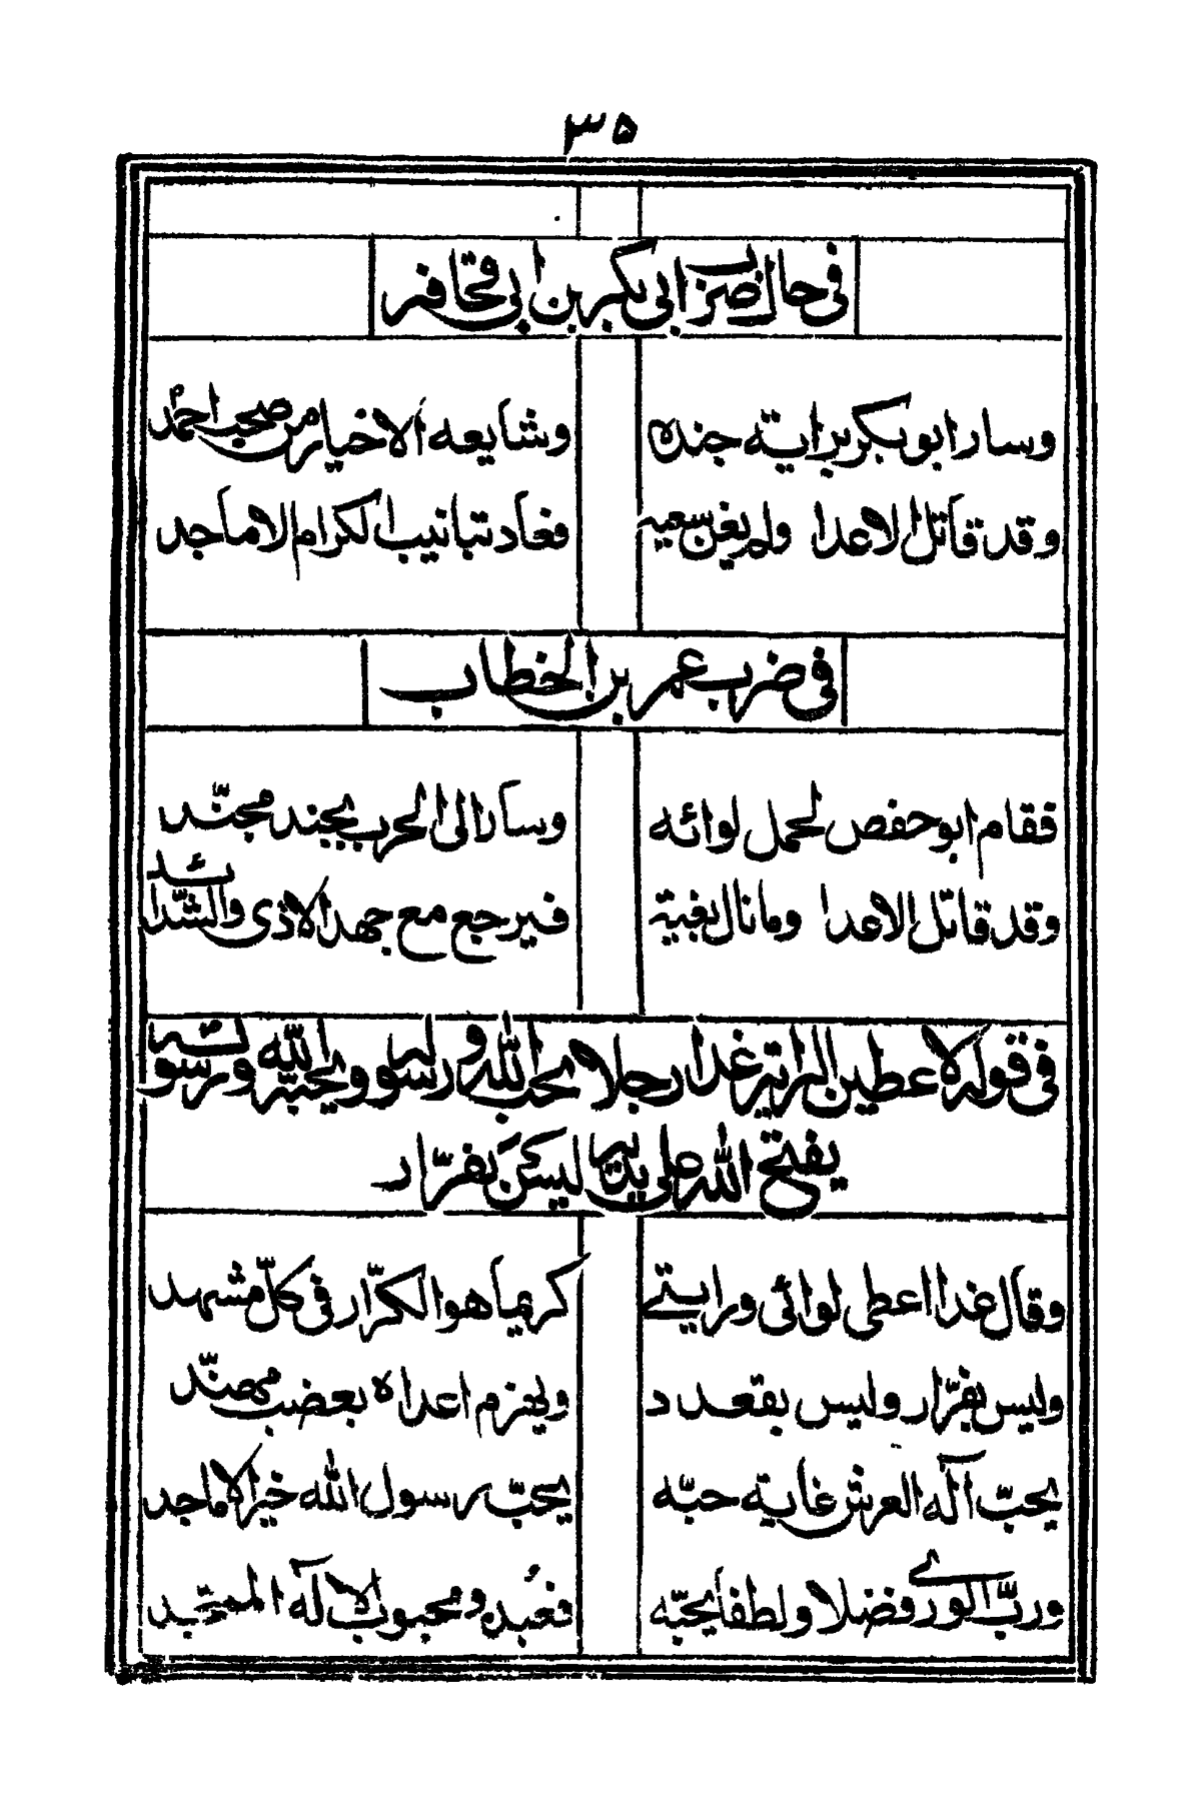 ٣٥
في حال ضرب ابي بكر بن ابي قحافه
وسار ابو بكر براية جنده وشايعه الاخيار من صحب احمد
وقد قاتل الاعدا ولم يغن سعيه فعاد بتانيب الكرام الاماجد
في ضرب عمر بن الخطاب
فقام ابو حفص لحمل لوائه وسار الى الحرب بجند مجنّد
وقد قاتل الاعدا وما نال بغية فيرجع مع جهد الاذى والشّدائد
في قوله لاعطين الراية غدا رجلا يحب اللّه ورسوله ويحبّه اللّه ورسوله
يفتح اللّه على يديه ليس كن بفرّار
وقال غدا اعطى لوائى ورايتي كريما هو الكرّار في كلّ مشهد
وليس بفرّار وليس بقعدد ويهزم اعداه بعضب مهنّد
يحبّ آله العرش غاية حبّه يحبّ رسول اللّه خير الاماجد
وربّ الورى فضلا ولطفا يحبّه فعبده ومحبوب الآله الممجّد